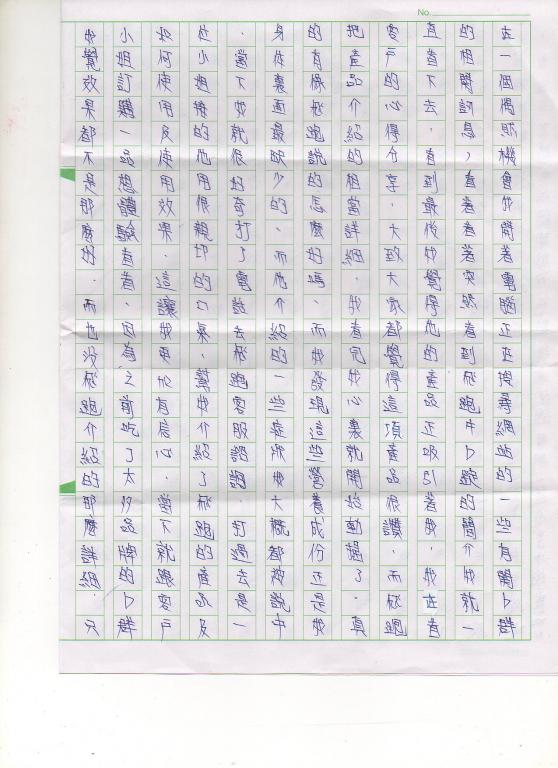 No.
在一個偶然機會我開著電腦正在搜尋網站的一些有關B群
的相關訊息,看著看著突然看到秘跑中B錠的簡介我就一
直看下去.看到最後我覺得他的產品正吸引著我.我在看
客戶的心得分享.大致大家都覺得這項產品很讚.而秘跑
把產品介紹的相當詳細.我看完我心裏就開始動搖了.真
的有像秘跑說的怎麼好嗎.而我發現這些營養成份正是我
身体裏面最缺少的.而他介紹的一些症狀大概都被說中
.當下我就很的奇打了電話去秘跑客服諮詢.打過去是一
位小姐接的他用很親切的口氣.幫我介紹了秘跑的產品及
如何使用及使用效果.這讓我更加有信心.當下就跟客戶
小姐訂購一品想體驗看看.因為之前吃了太多品牌的B群
我覺效果都不是那麼好.而也沒秘跑介紹的那麼詳細.只